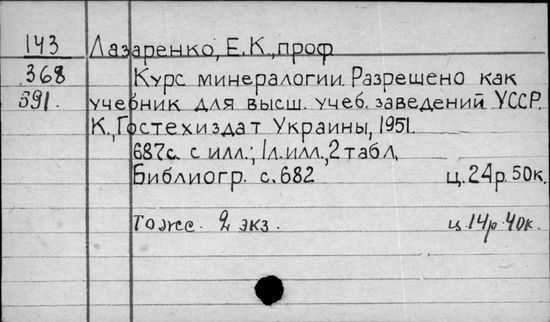 143 Лазаренко, Е.К., проф
368 Курс минералогии. Разрешено как
591. учебник для высш. учеб. заведений УССР.
К., Гостехиздат Украины, 1951.
687с. с илл.; 1л. илл., 2 табл.
Библиогр. с. 682 ц. 24р. 50к.
Тоже. 2 экз. ц. 14р. 40к.